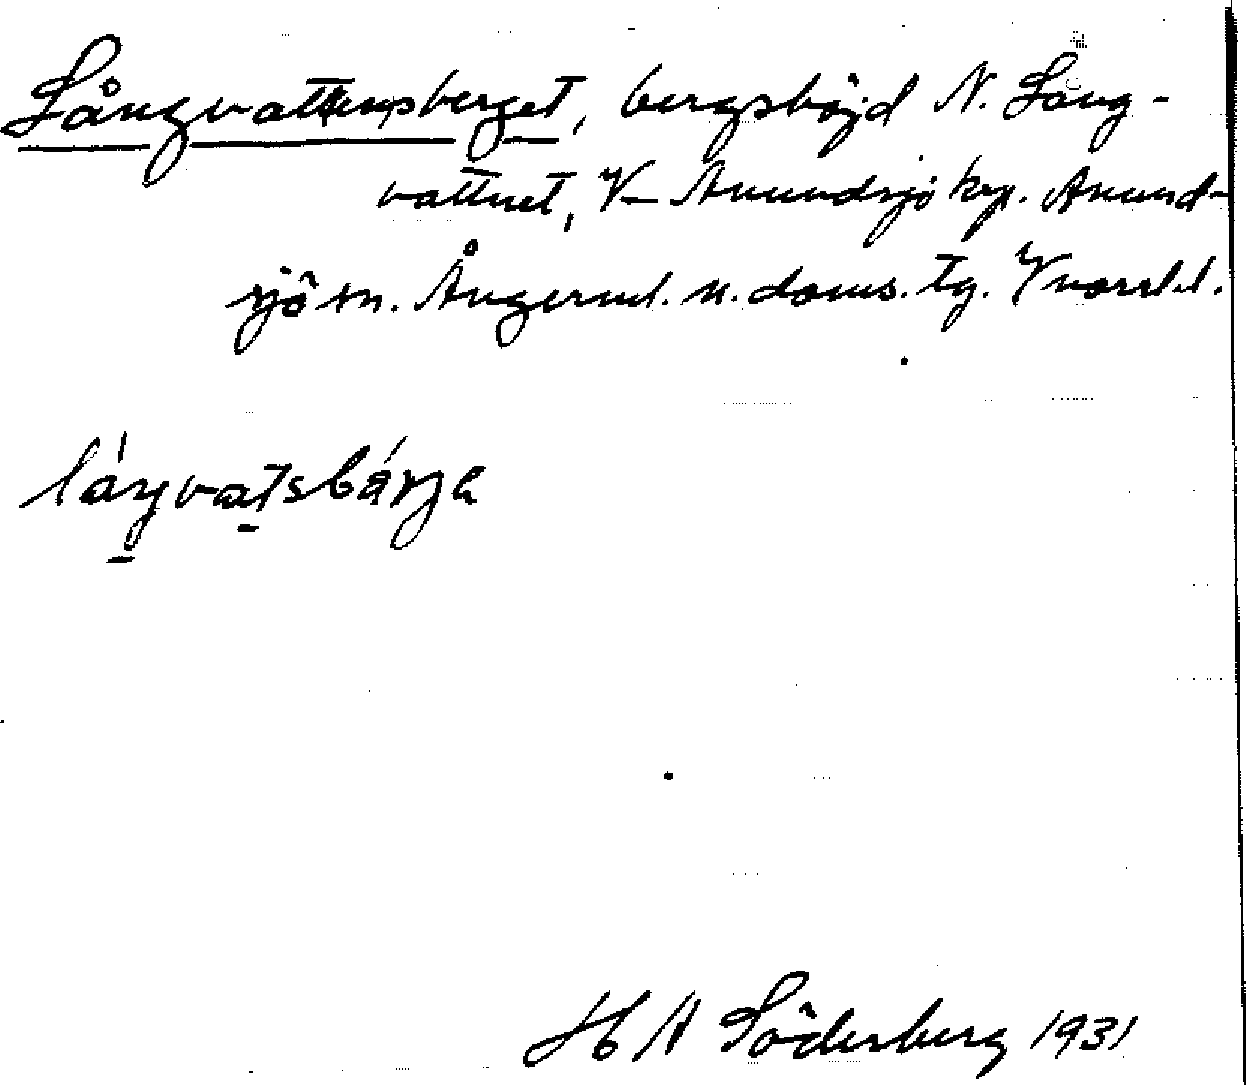 Långvattensberget, bergshöjd N. Lång-
vattnet, V Anundsjö kap. Anund-
sjö sn. Ångerml. n. doms. tg. Vnorrl. l.
H A Söderberg 1931